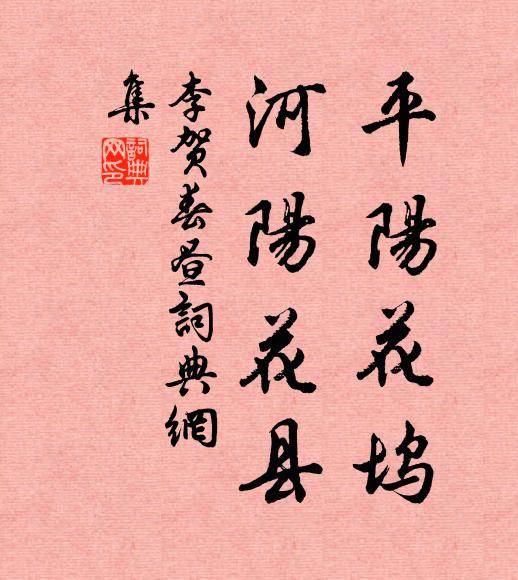 平陽花坞
河陽花县
李贺春昼詞典網
集
詞典
网印